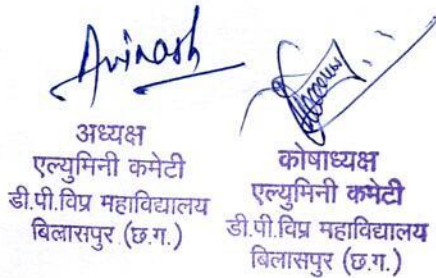 Avinash
अध्यक्ष
एल्युमिनी कमेटी
डी.पी.विप्र महाविद्यालय
बिलासपुर (छ.ग.)
कोषाध्यक्ष
एल्युमिनी कमेटी
डी.पी.विप्र महाविद्यालय
बिलासपुर (छ.ग.)